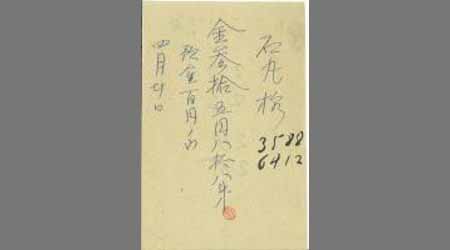 石丸様
3588
6412
金参拾五円八拾八銭
預金百円ノ内
四月廿日